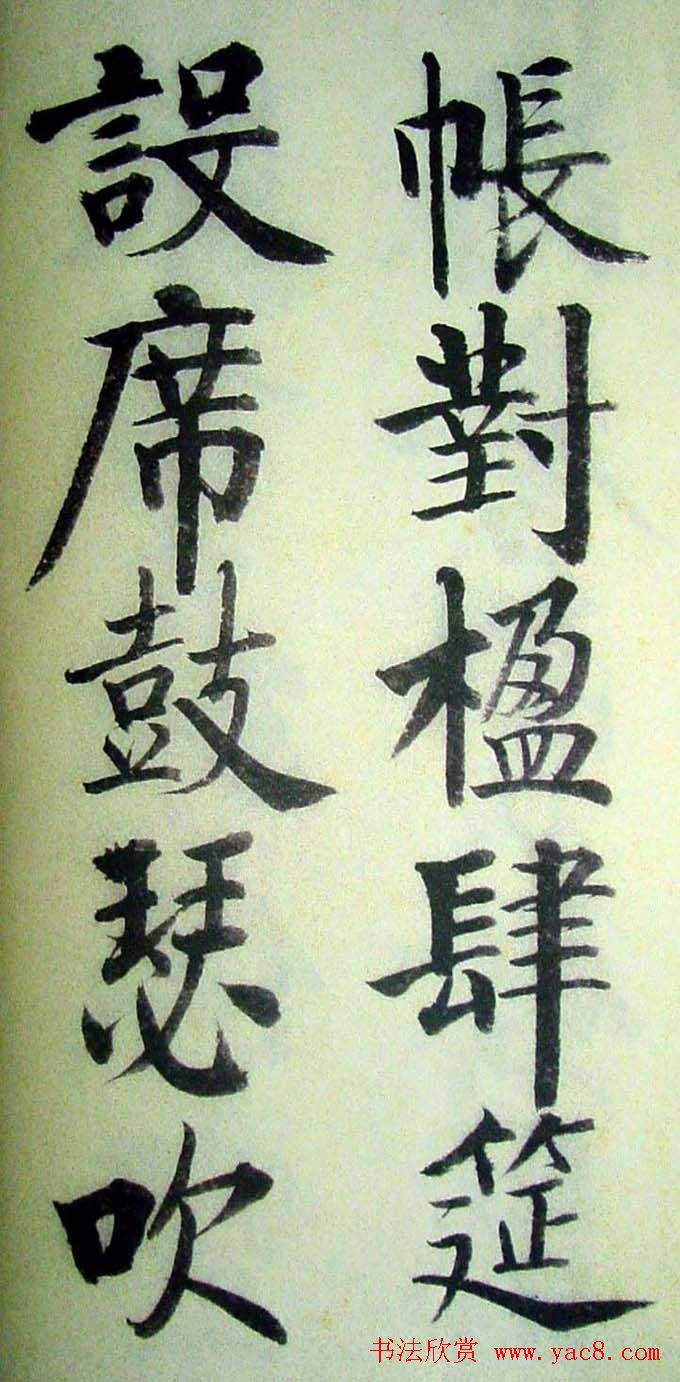 帳對楹肆筵
設席鼓瑟吹
书法欣赏 www.yac8.com